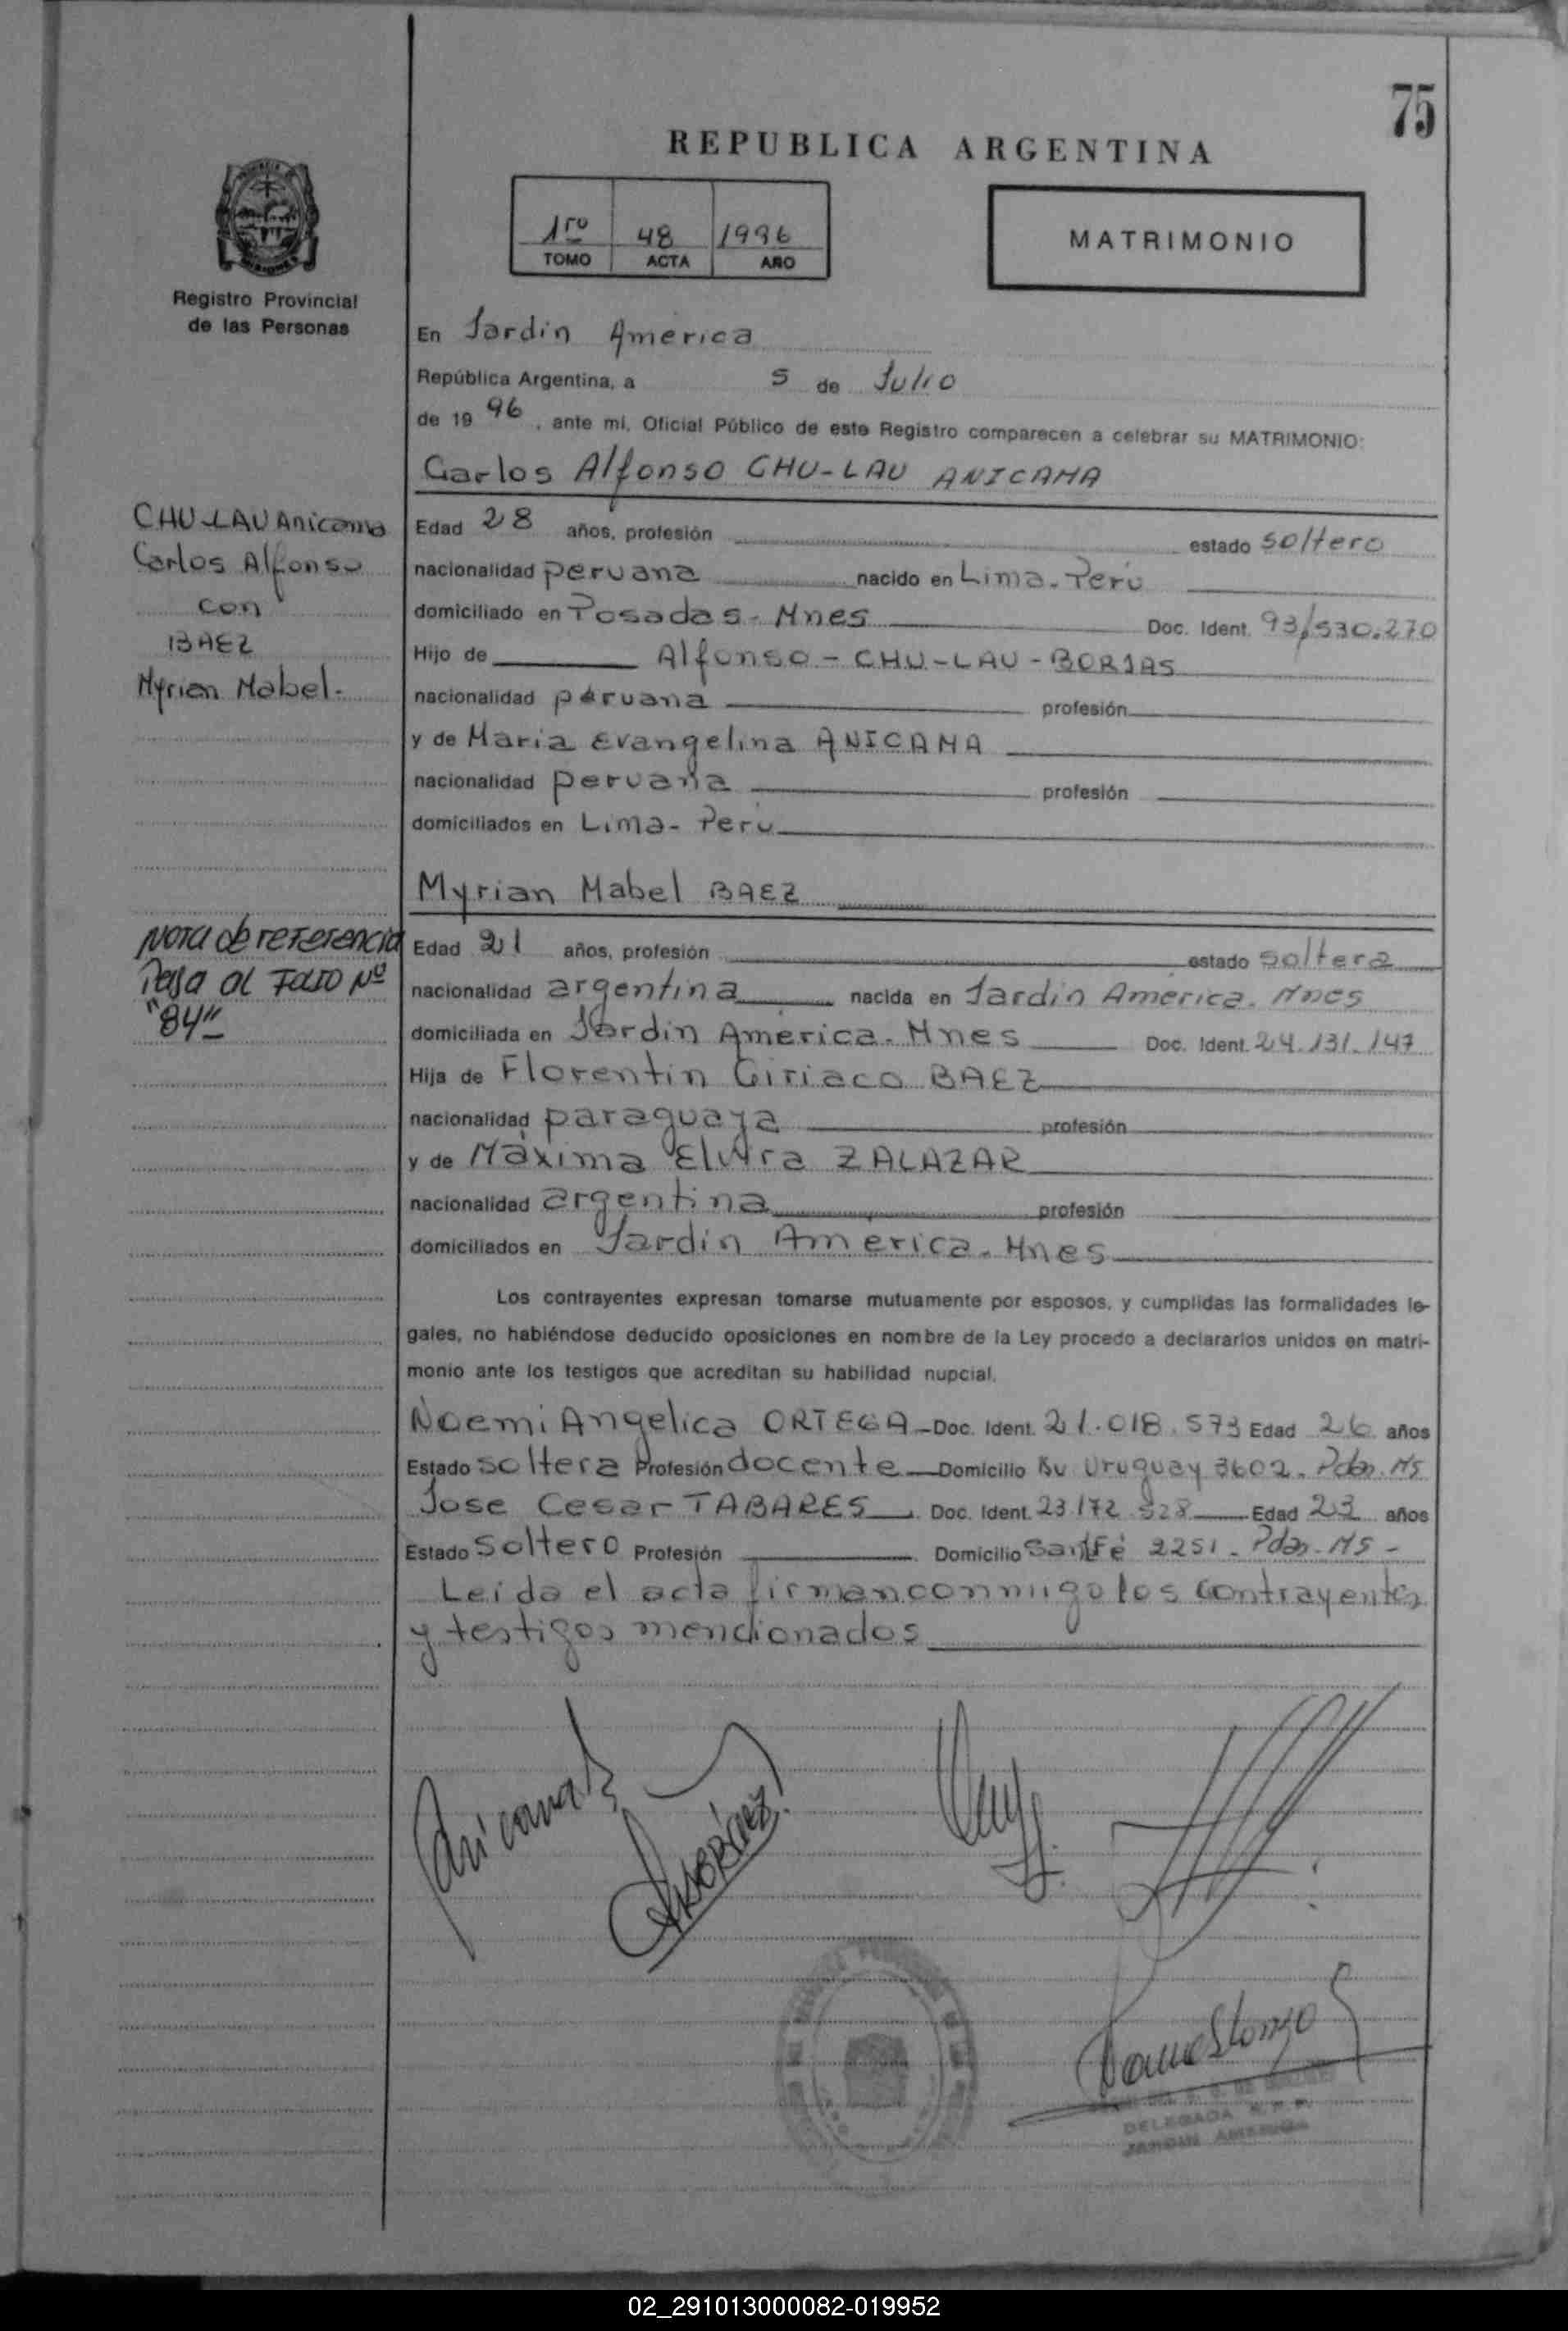 75
REPUBLICA ARGENTINA
1ro 48 1996
TOMO ACTA AÑO
MATRIMONIO
Registro Provincial
de las Personas
En Jardín América
República Argentina, a 5 de Julio
de 19 96, ante mí, Oficial Público de este Registro comparecen a celebrar su MATRIMONIO:
Carlos Alfonso CHU-LAU ANICAMA
CHU-LAU Anicama
Carlos Alfonso
con
BAEZ
Myrian Mabel.-
Edad 28 años, profesión estado soltero
nacionalidad peruana nacido en Lima-Perú
domiciliado en Posadas-Mnes Doc. Ident. 93/530.270
Hijo de Alfonso-CHU-LAU-BORJAS
nacionalidad peruana profesión
y de Maria Evangelina ANICAMA
nacionalidad peruana profesión
domiciliados en Lima-Perú
Myrian Mabel BAEZ
Nota de referencia
Pasa al Folio Nº
"84"
Edad 21 años, profesión estado soltera
nacionalidad argentina nacida en Jardín América. Mnes
domiciliada en Jardín América-Mnes Doc. Ident. 24.131.147
Hija de Florentin Ciriaco BAEZ
nacionalidad paraguaya profesión
y de Máxima Elvira ZALAZAR
nacionalidad argentina profesión
domiciliados en Jardín América-Mnes
Los contrayentes expresan tomarse mutuamente por esposos, y cumplidas las formalidades le-
gales, no habiéndose deducido oposiciones en nombre de la Ley procedo a declararlos unidos en matri-
monio ante los testigos que acreditan su habilidad nupcial.
Noemi Angelica ORTEGA-Doc. Ident. 21.018.573 Edad 26 años
Estado soltera Profesión docente Domicilio Bv Uruguay 3602. Pdas. Ms
Jose Cesar TABARES Doc. Ident. 23.172.528 Edad 23 años
Estado Soltero Profesión Domicilio Santa Fé 2251-Pdas-Ms-
Leida el acta firman conmigo los contrayentes
y testigos mencionados
DELEGADA R.P.P.
JARDIN AMERICA
02_291013000082-019952